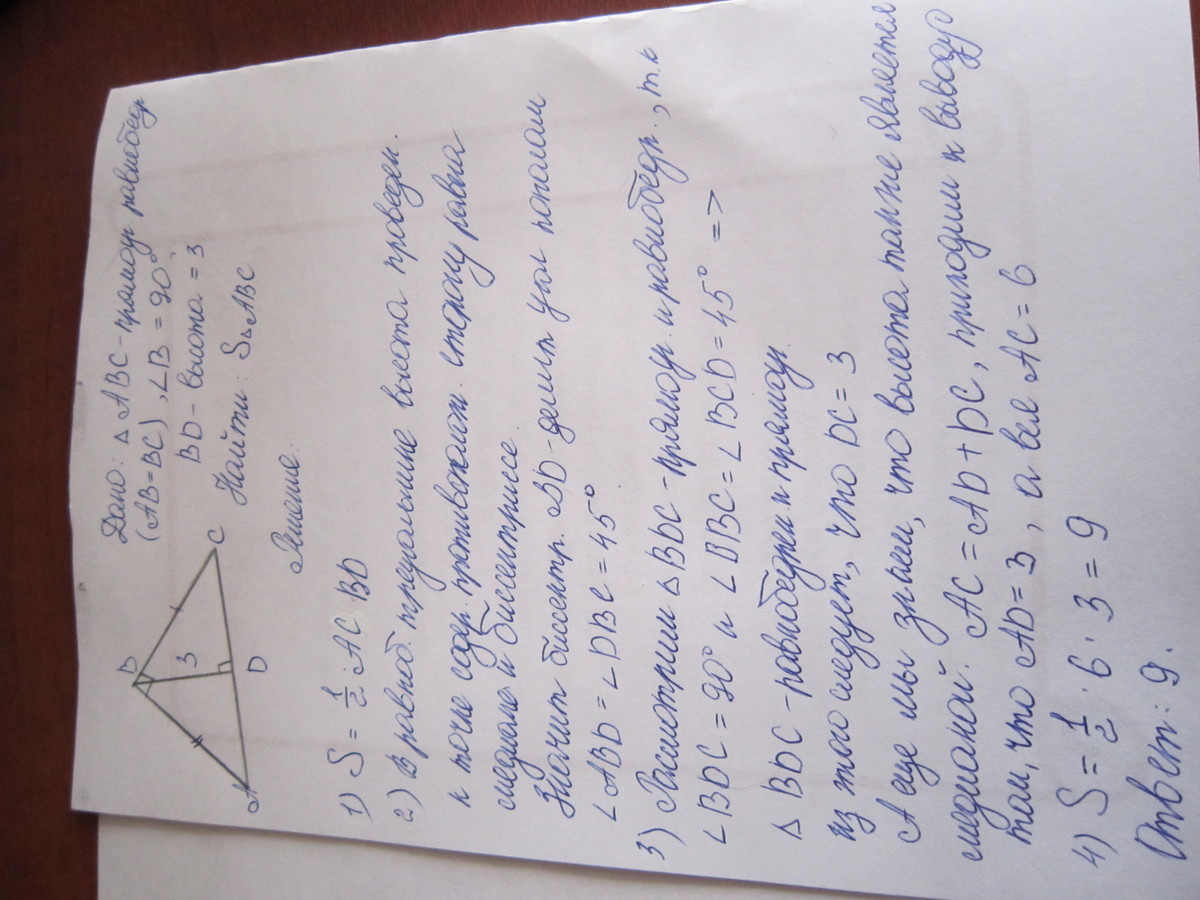 Дано: △ ABC - прямоуг равнобедр
(AB=BC), ∠B = 90°,
BD - высота = 3
Найти: S△ABC
B
3
A
D
C
Решение:
1) S = 1/2 · AC · BD
2) В равноб. треугольнике высота проведен.
к точке содр. противопол. сторону равна
медиане и биссектриссе.
Значит биссектр. BD - делит угол пополам
∠ABD = ∠DBC = 45°
3) Рассмотрим △ BDC - прямоуг. и равнобедр., т.к
∠BDC = 90° и ∠DBC = ∠BCD = 45° =>
△ BDC - равнобедрен и прямоуг.
из этого следует, что DC = 3
А еще мы знаем, что высота также является
медианой. AC = AD + DC, приходим к выводу
том, что AD = 3, а вся AC = 6
4) S = 1/2 · 6 · 3 = 9
Ответ: 9.